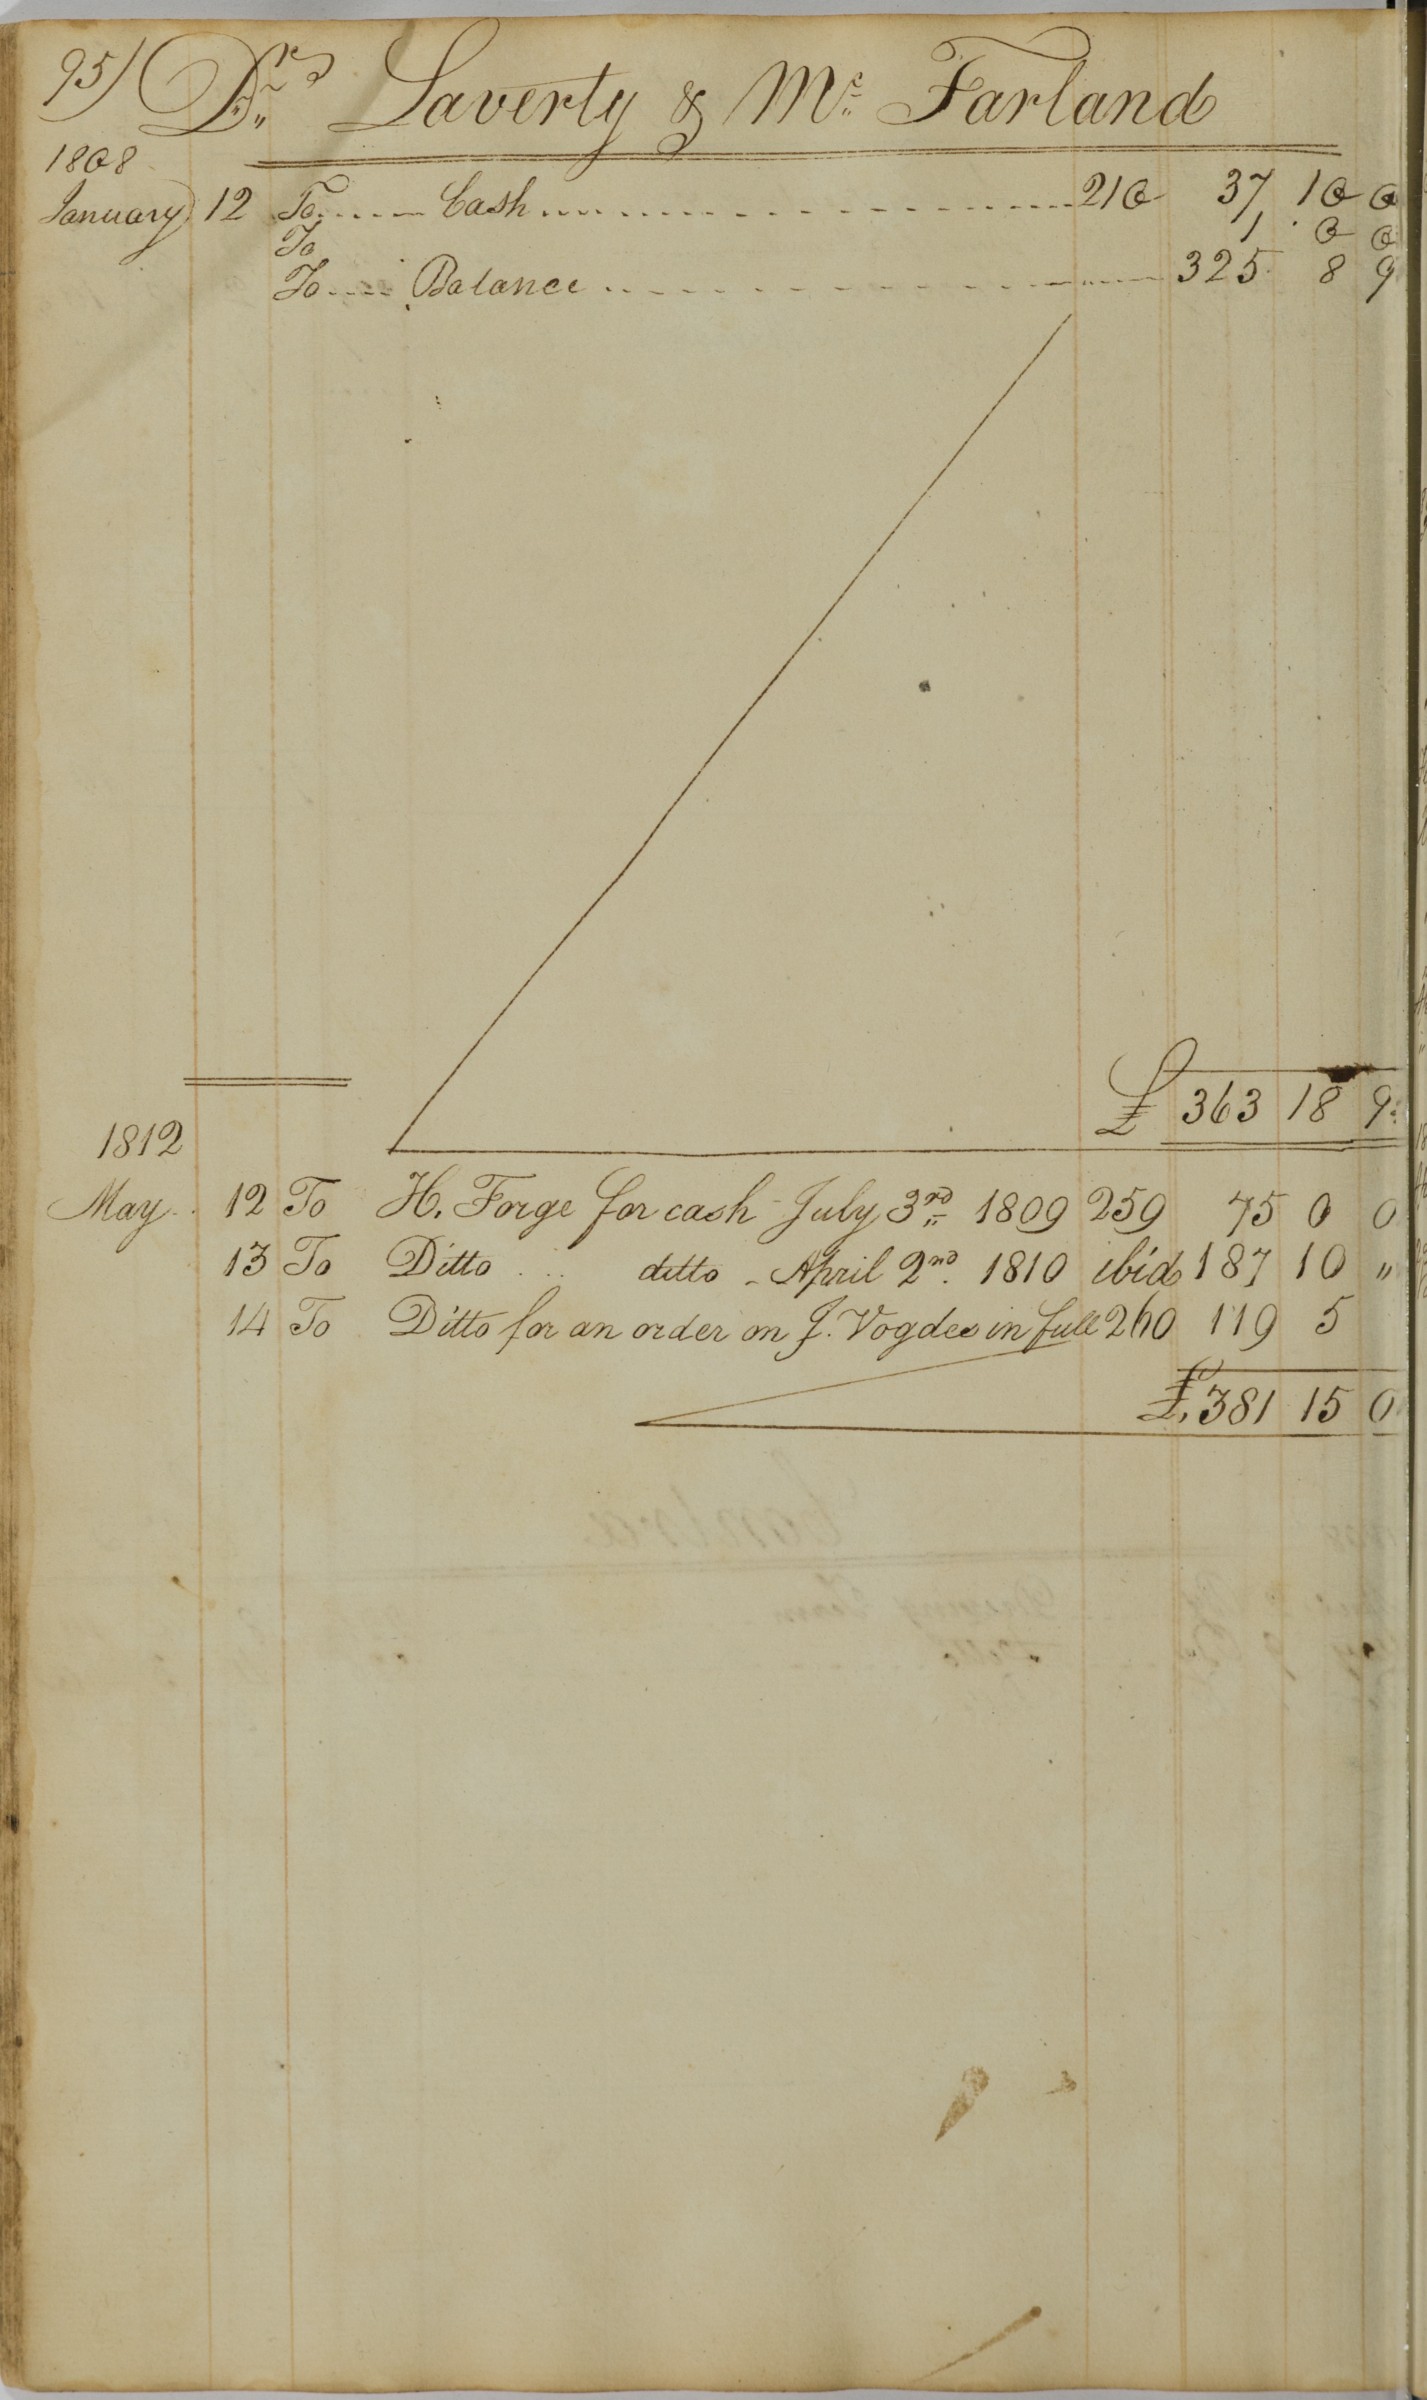 95) Drs Laverty & Mc Farland
1808
January 12 To Cash 210 37 10 0
To 1 0 0
To Balance 325 8 9
£ 363 18 9
1812
May 12 To H. Forge for cash July 3rd 1809 259 75 0 0
13 To Ditto ditto - April 2nd 1810 ibid 187 10 "
14 To Ditto for an order on J. Vogdes in full 260 119 5
£ 381 15 0